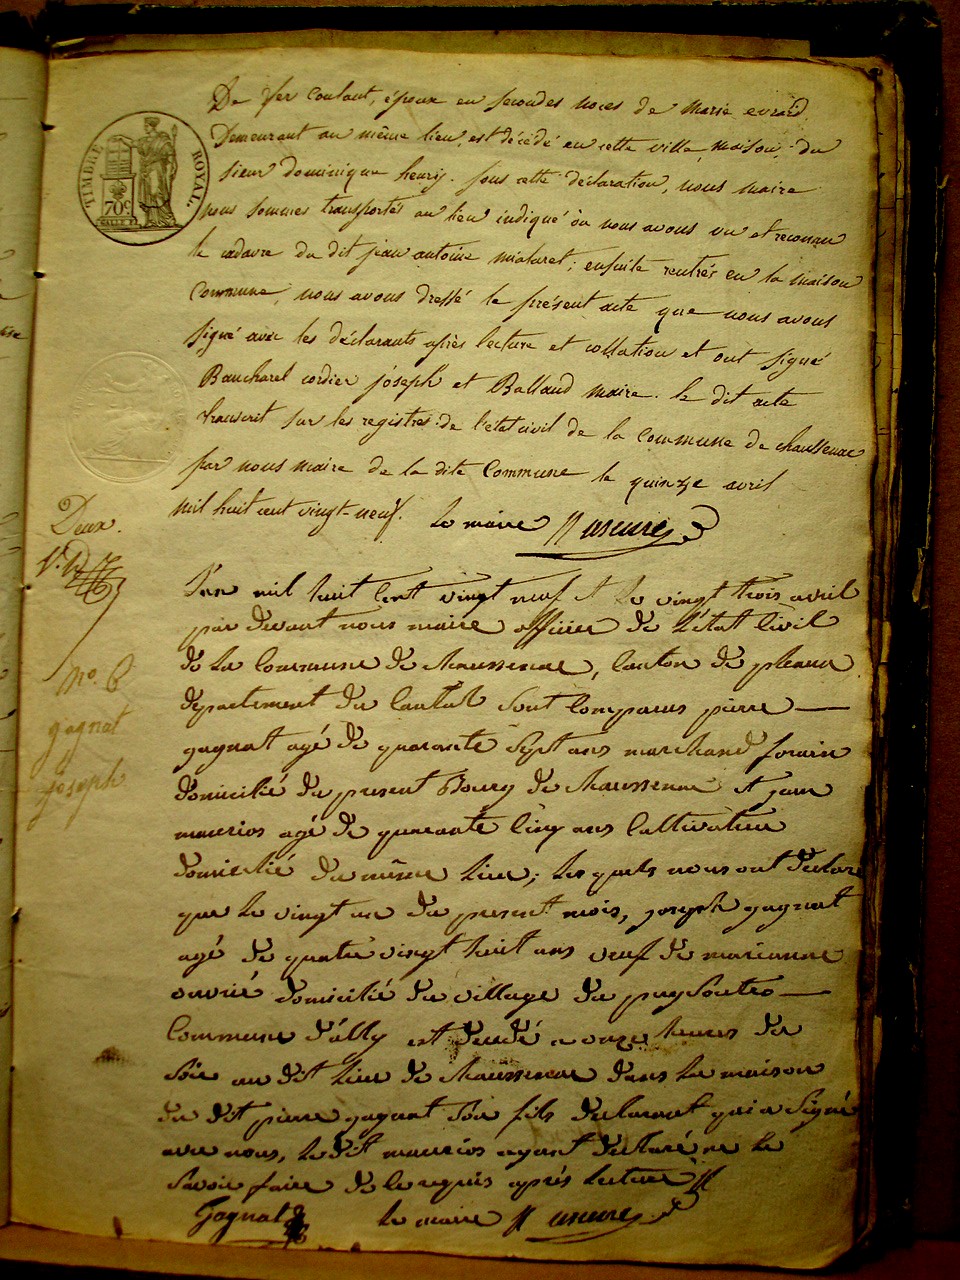 TIMBRE ROYAL.
70c
De fer coulant, époux en secondes noces de Marie evrard
Demeurant au même lieu, est décédé en cette ville, maison du
sieur dominique henry. sous cette déclaration, nous maire
nous sommes transportés au lieu indiqué où nous avons vu et reconnu
le cadavre du dit jean antoine mialaret; ensuite rentrés en la maison
Commune, nous avons dressé le présent acte que nous avons
signé avec les déclarants après lecture et collation et ont signé
Baucharel cordier joseph et Balland maire. le dit acte
transcrit sur les registres de l'état civil de la Commune de chaussenac
par nous maire de la dite Commune le quinze avril
mil huit cent vingt neuf. Le maire
Deux.
L'an mil huit Cent vingt neuf et le vingt trois avril
par devant nous maire officier de L'état Civil
de La Commune de Chaussenac, Canton de pleaux
département du Cantal sont Comparus pierre
gagnat agé de quarante sept ans marchand forain
domicilié du present Bourg de Chaussenac et jean
maurios agé de quarante Cinq ans Cultivateur
domicilié du même Lieu; Les quels nous ont declaré
que Le vingt un du present mois, joseph gagnat
agé de quatre vingt huit ans veuf de marianne
ouvrié domicilié du village du puy Soutro
Commune d'ally est decedé a onze heures du
Soir au dit Lieu de Chaussenac dans La maison
du dit pierre gagnat Son fils declarant qui a Signé
avec nous, Le dit maurios ayant declaré ne Le
Savoir faire de Ce requis après Lecture
Gagnat Le maire
no. 6
gagnat
joseph